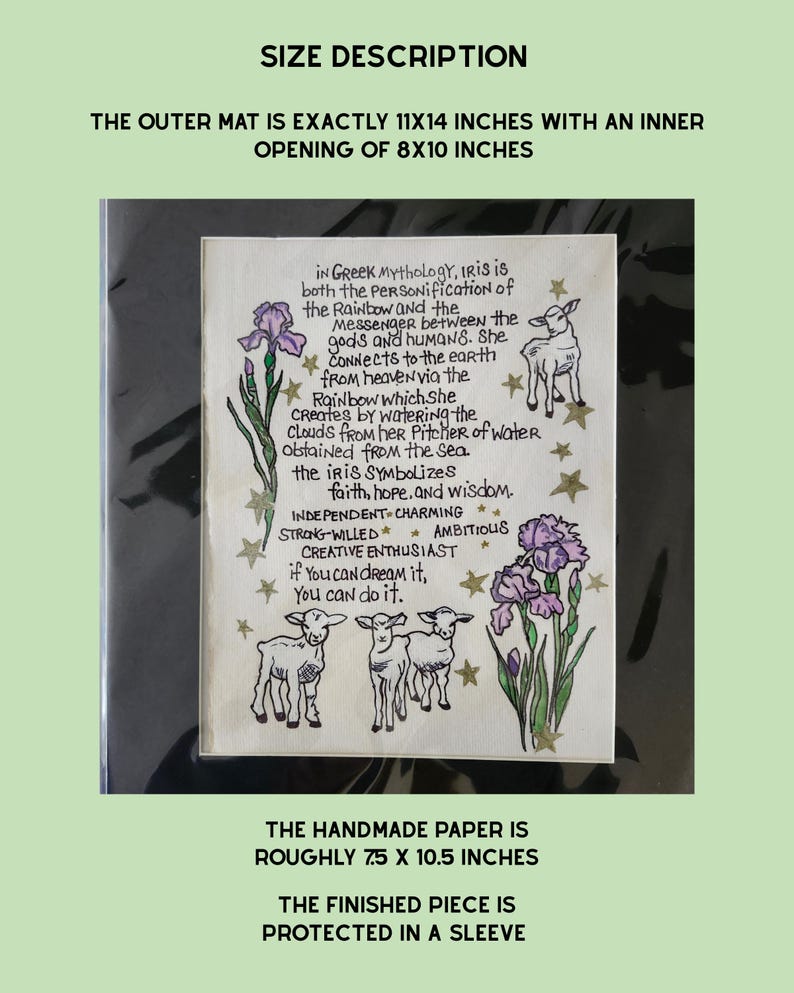 SIZE DESCRIPTION
THE OUTER MAT IS EXACTLY 11X14 INCHES WITH AN INNER
OPENING OF 8X10 INCHES
IN GREEK MYTHOLOGY, IRIS IS
both the PERSONIFICATION OF
the RAINBOW AND the
MESSENGER between the
gods AND HUMANS. She
CONNECTS to the EARTH
FROM HEAVEN VIA the
RAINBOW which she
CREATES by WATERING the
CLOUDS FROM HER PITCHER OF WATER
Obtained FROM the Sea.
the IRIS SYMBOLIZES
faith, hope, AND WISDOM.
INDEPENDENT CHARMING
STRONG-WILLED AMBITIOUS
CREATIVE ENTHUSIAST
if YOU CAN DREAM it,
YOU CAN do it.
THE HANDMADE PAPER IS
ROUGHLY 7.5 X 10.5 INCHES
THE FINISHED PIECE IS
PROTECTED IN A SLEEVE